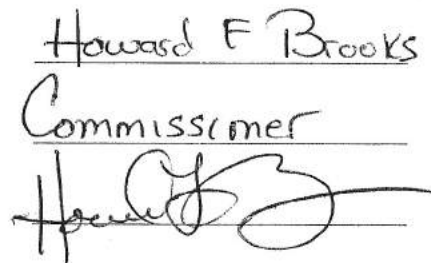 Howard F Brooks
Commissioner